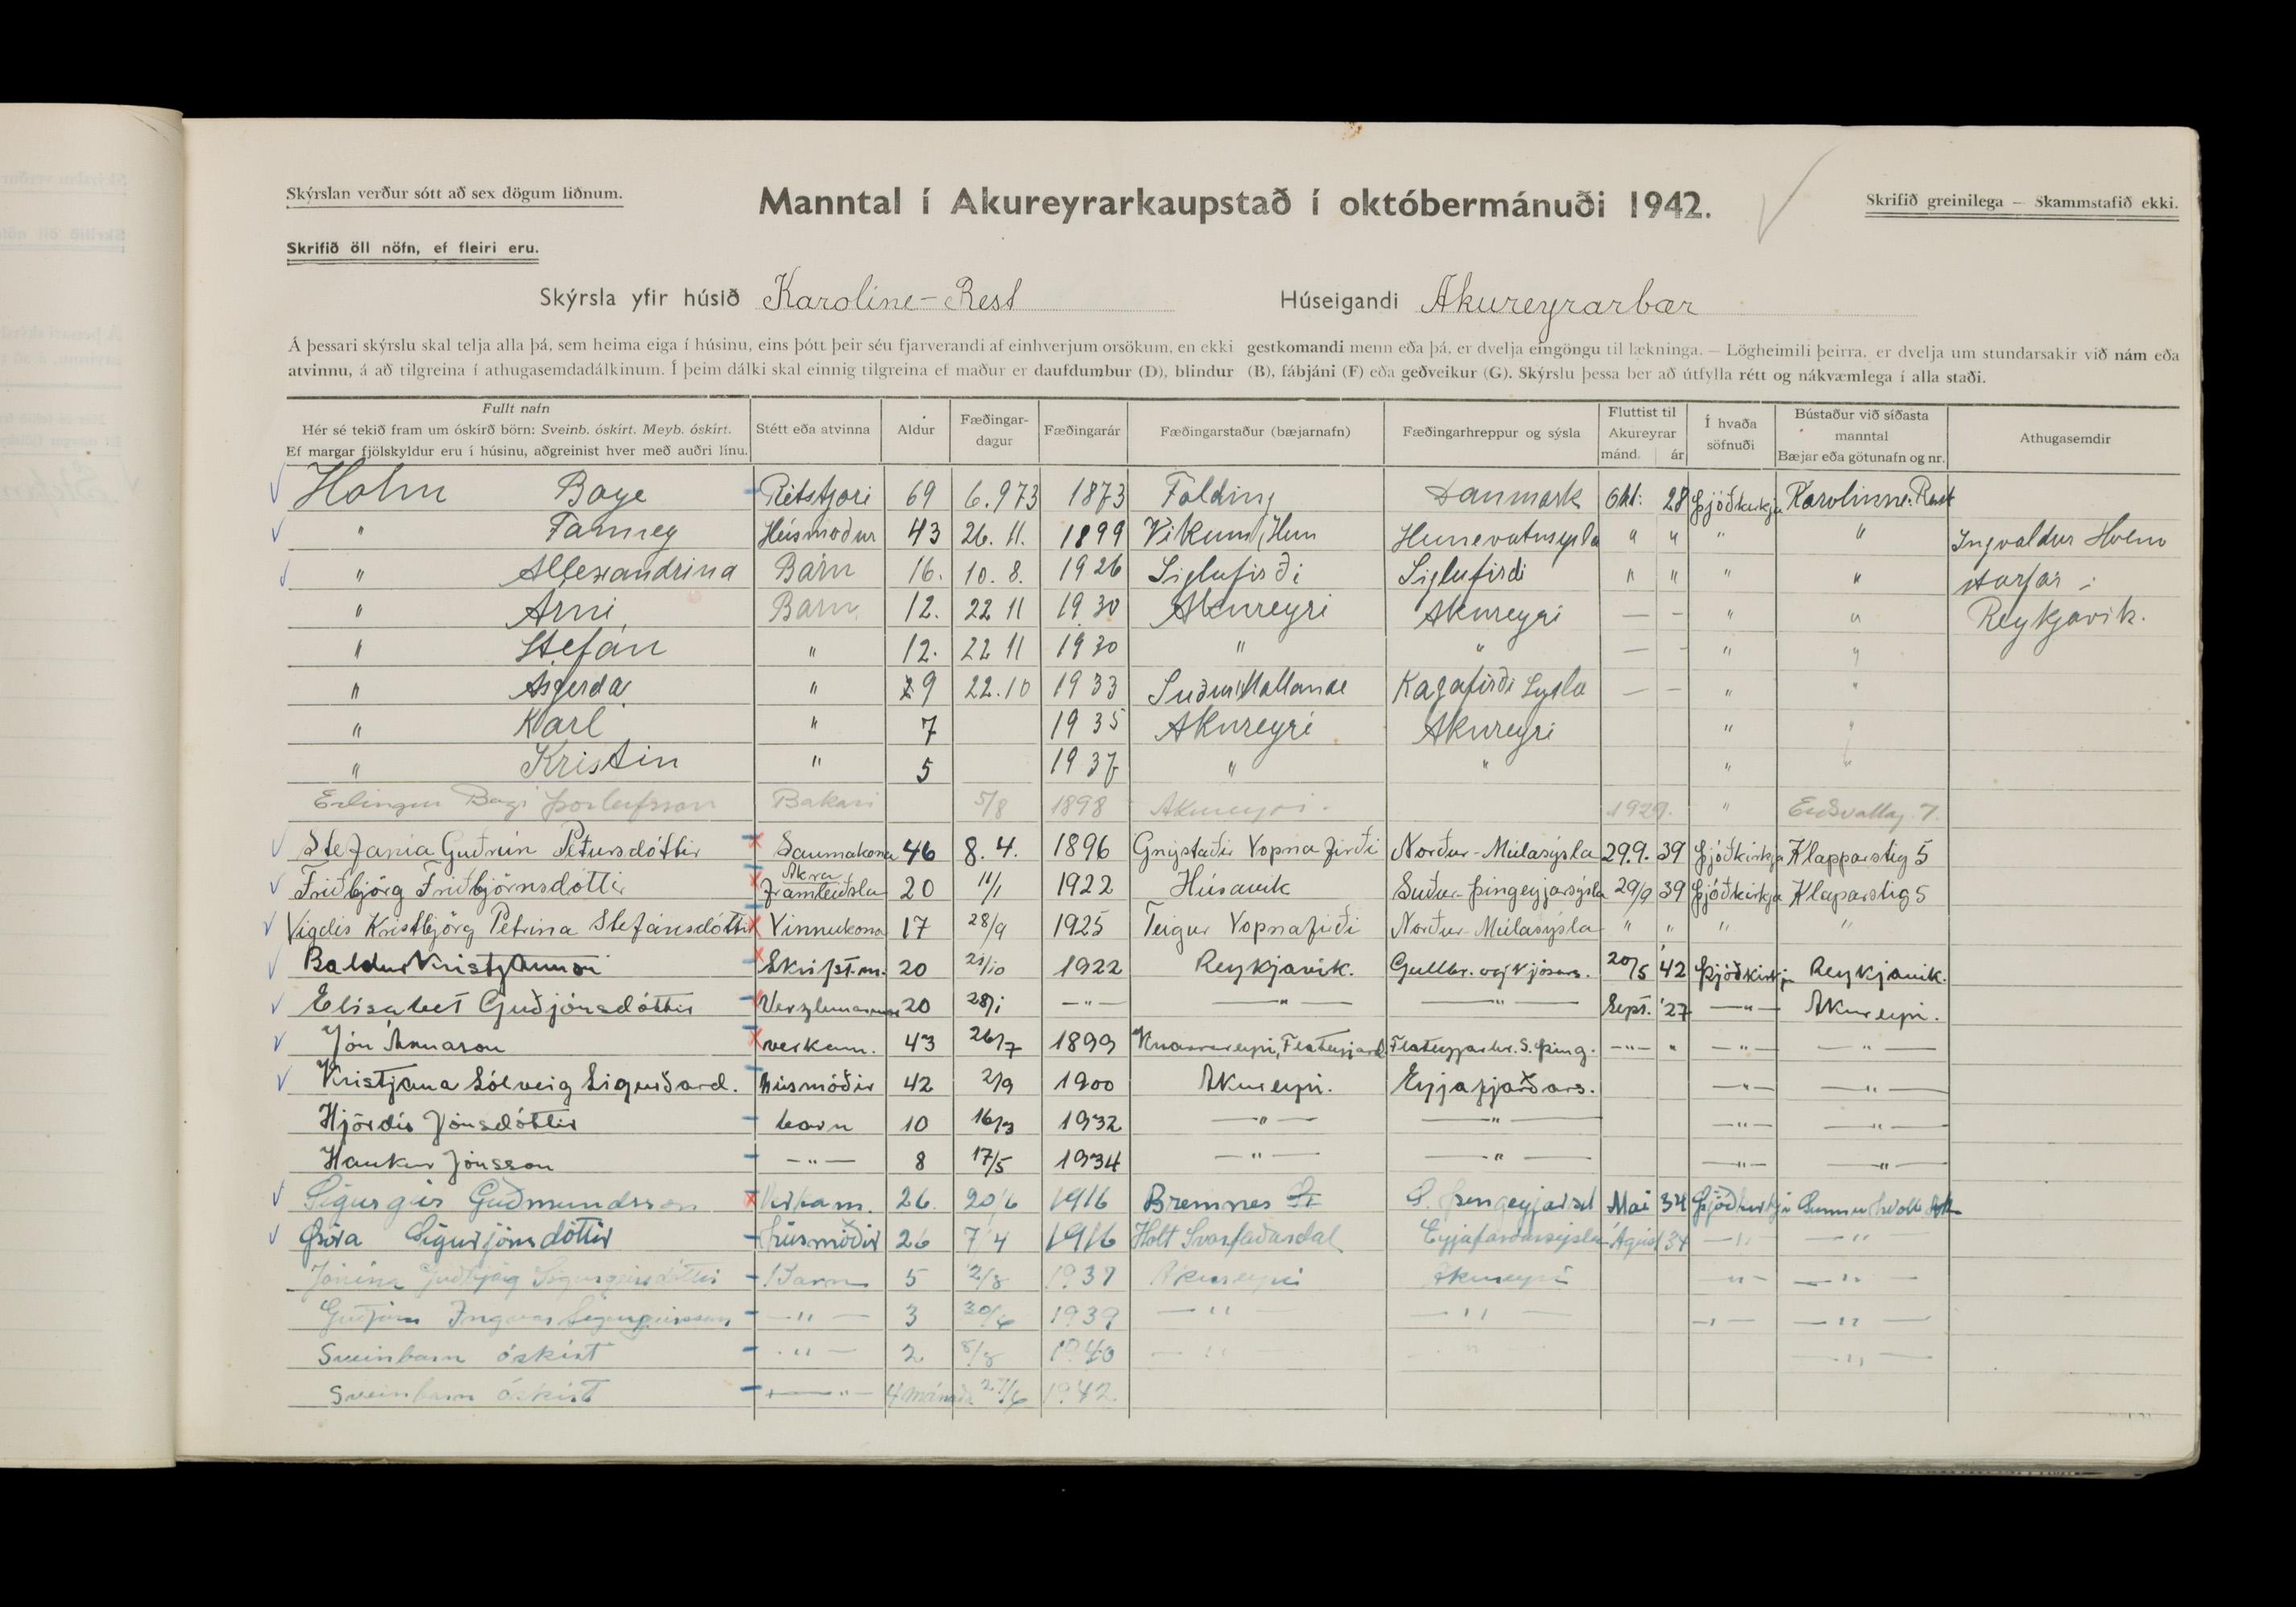 Skýrslan verður sótt að sex dögum liðnum.
Manntal í Akureyrarkaupstað í októbermánuði 1942.
Skrifið greinilega — Skammstafið ekki.
Skrifið öll nöfn, ef fleiri eru.
Skýrsla yfir húsið Karoline-Rest Húseigandi Akureyrarbær
Á þessari skýrslu skal telja alla þá, sem heima eiga í húsinu, eins þótt þeir séu fjarverandi af einhverjum orsökum, en ekki gestkomandi menn eða þá, er dvelja eingöngu til lækninga. — Lögheimili þeirra, er dvelja um stundarsakir við nám eða
atvinnu, á að tilgreina í athugasemdadálkinum. Í þeim dálki skal einnig tilgreina ef maður er daufdumbur (D), blindur (B), fábjáni (F) eða geðveikur (G). Skýrslu þessa ber að útfylla rétt og nákvæmlega í alla staði.
Fullt nafn
Hér sé tekið fram um óskírð börn: Sveinb. óskírt. Meyb. óskírt.
Ef margar fjölskyldur eru í húsinu, aðgreinist hver með auðri línu.
Stétt eða atvinna
Aldur
Fæðingar-
dagur
Fæðingarár
Fæðingarstaður (bæjarnafn)
Fæðingarhreppur og sýsla
Fluttist til
Akureyrar
mánd. ár
Í hvaða
söfnuði
Bústaður við síðasta
manntal
Bæjar eða götunafn og nr.
Athugasemdir
Holm Boye Ritstjori 69 6.973 1873 Folding Danmark Okt: 28 Þjóðkirkju Karolinne-Rest
" Fanney Húsmoður 43 26. 11. 1899 Vikum, Hun Hunevatnsysla " " " " Ingvaldur Holm
" Allexandrina Barn 16. 10. 8. 1926 Siglufirði Siglufirdi " " " " starfar í
" Arni Barn 12. 22 11 1930 Akureyri Akureyri — - " " Reykjavik.
" Stefán " 12. 22 11 1930 " " — - " "
" Asgerda " 9 22.10 1933 — - " "
" Karl " 7 1935 Akureyri Akureyri " "
" Kristin " 5 1937 " " " "
Erlingur Þorleifsson Bakari 5/8 1898 Akureyri. 1929. " Eiðsvallag. 7.
Stefanía Guðrún Pétursdóttir Saumakona 46 8. 4. 1896 Gnýstaðir Vopnafirði Norður-Múlasýsla 29.9. 39 Þjóðkirkja Klapparstíg 5
Friðbjörg Friðbjörnsdóttir Akra framleiðsla 20 11/1 1922 Húsavík Suður-Þingeyjarsýsla 29/9 39 Þjóðkirkja Klaparstíg 5
Vigdís Kristbjörg Petrína Stefánsdóttir Vinnukona 17 28/9 1925 Teigur Vopnafirði Norður-Múlasýsla " " " "
Baldur Skrifst.m. 20 21/10 1922 Reykjavík. Gullbr. og Kjósars. 20/5 '42 Þjóðkirkju Reykjavík.
Elísabet Guðjónsdóttir 20 28/1 —"— —"— —"— Sept. '27 —"— Akureyri.
Jón Árnason verkam. 43 26/7 1899 Flateyjarhr. S. Þing. —"— " —"— —"—
Kristjana Sólveig Sigurðard. húsmóðir 42 2/9 1900 Akureyri. Eyjafjarðars. —"— —"—
Hjördís Jónsdóttir barn 10 16/3 1932 —"— —"— —"— —"—
Haukur Jónsson —"— 8 17/5 1934 —"— —"— —"— —"—
Sigurgeir Guðmundsson Verkam. 26. 20/6 1916 Bremnes Mai 34
Þóra Sigurjónsdóttir Húsmóðir 26 7 4 1916 Holt Svarfaðardal Ágúst 34 —"— —"—
Jónína Guðbjörg Sigurgeirsdóttir Barn 5 2/8 1937 Akureyri Akureyri —"— —"—
Guðjón Ingvar Sigurgeirsson —"— 3 30/6 1939 —"— —"— —"— —"—
Sveinbarn óskírt —"— 2 1940 —"— —"— —"—
Sveinbarn óskírt —"— 4 mánaða 27/6 1942.